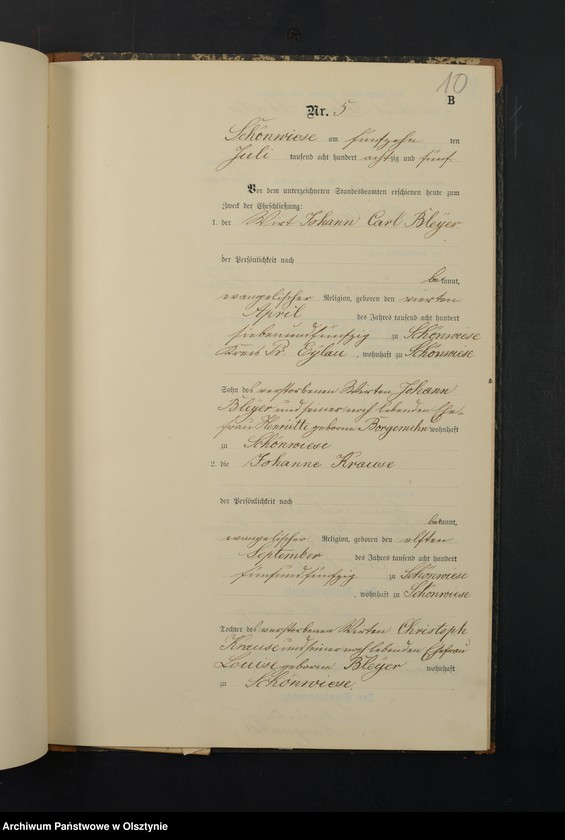 10
B
Nr. 5
Schönwiese am fünfzehn ten
Juli tausend acht hundert achtzig und fünf
Vor dem unterzeichneten Standesbeamten erschienen heute zum
Zweck der Eheschließung:
1. der Wirt Johann Carl Bleyer
der Persönlichkeit nach
bekannt,
evangelischer Religion, geboren den vierten
April des Jahres tausend acht hundert
siebenundfünfzig zu Schönwiese
Kreis Pr. Eylau , wohnhaft zu Schönwiese
Sohn des verstorbenen Wirten Johann
Bleyer und seiner noch lebenden Ehe-
frau Henriette geborene Borgemehn wohnhaft
zu Schönwiese
2. die Johanne Krause
der Persönlichkeit nach
bekannt,
evangelischer Religion, geboren den elften
September des Jahres tausend acht hundert
fünfundfünfzig zu Schönwiese
, wohnhaft zu Schönwiese
Tochter des verstorbenen Wirten Christoph
Krause und seiner noch lebenden Ehefrau
Louise geborene Bleyer wohnhaft
zu Schönwiese.
Archiwum Państwowe w Olsztynie